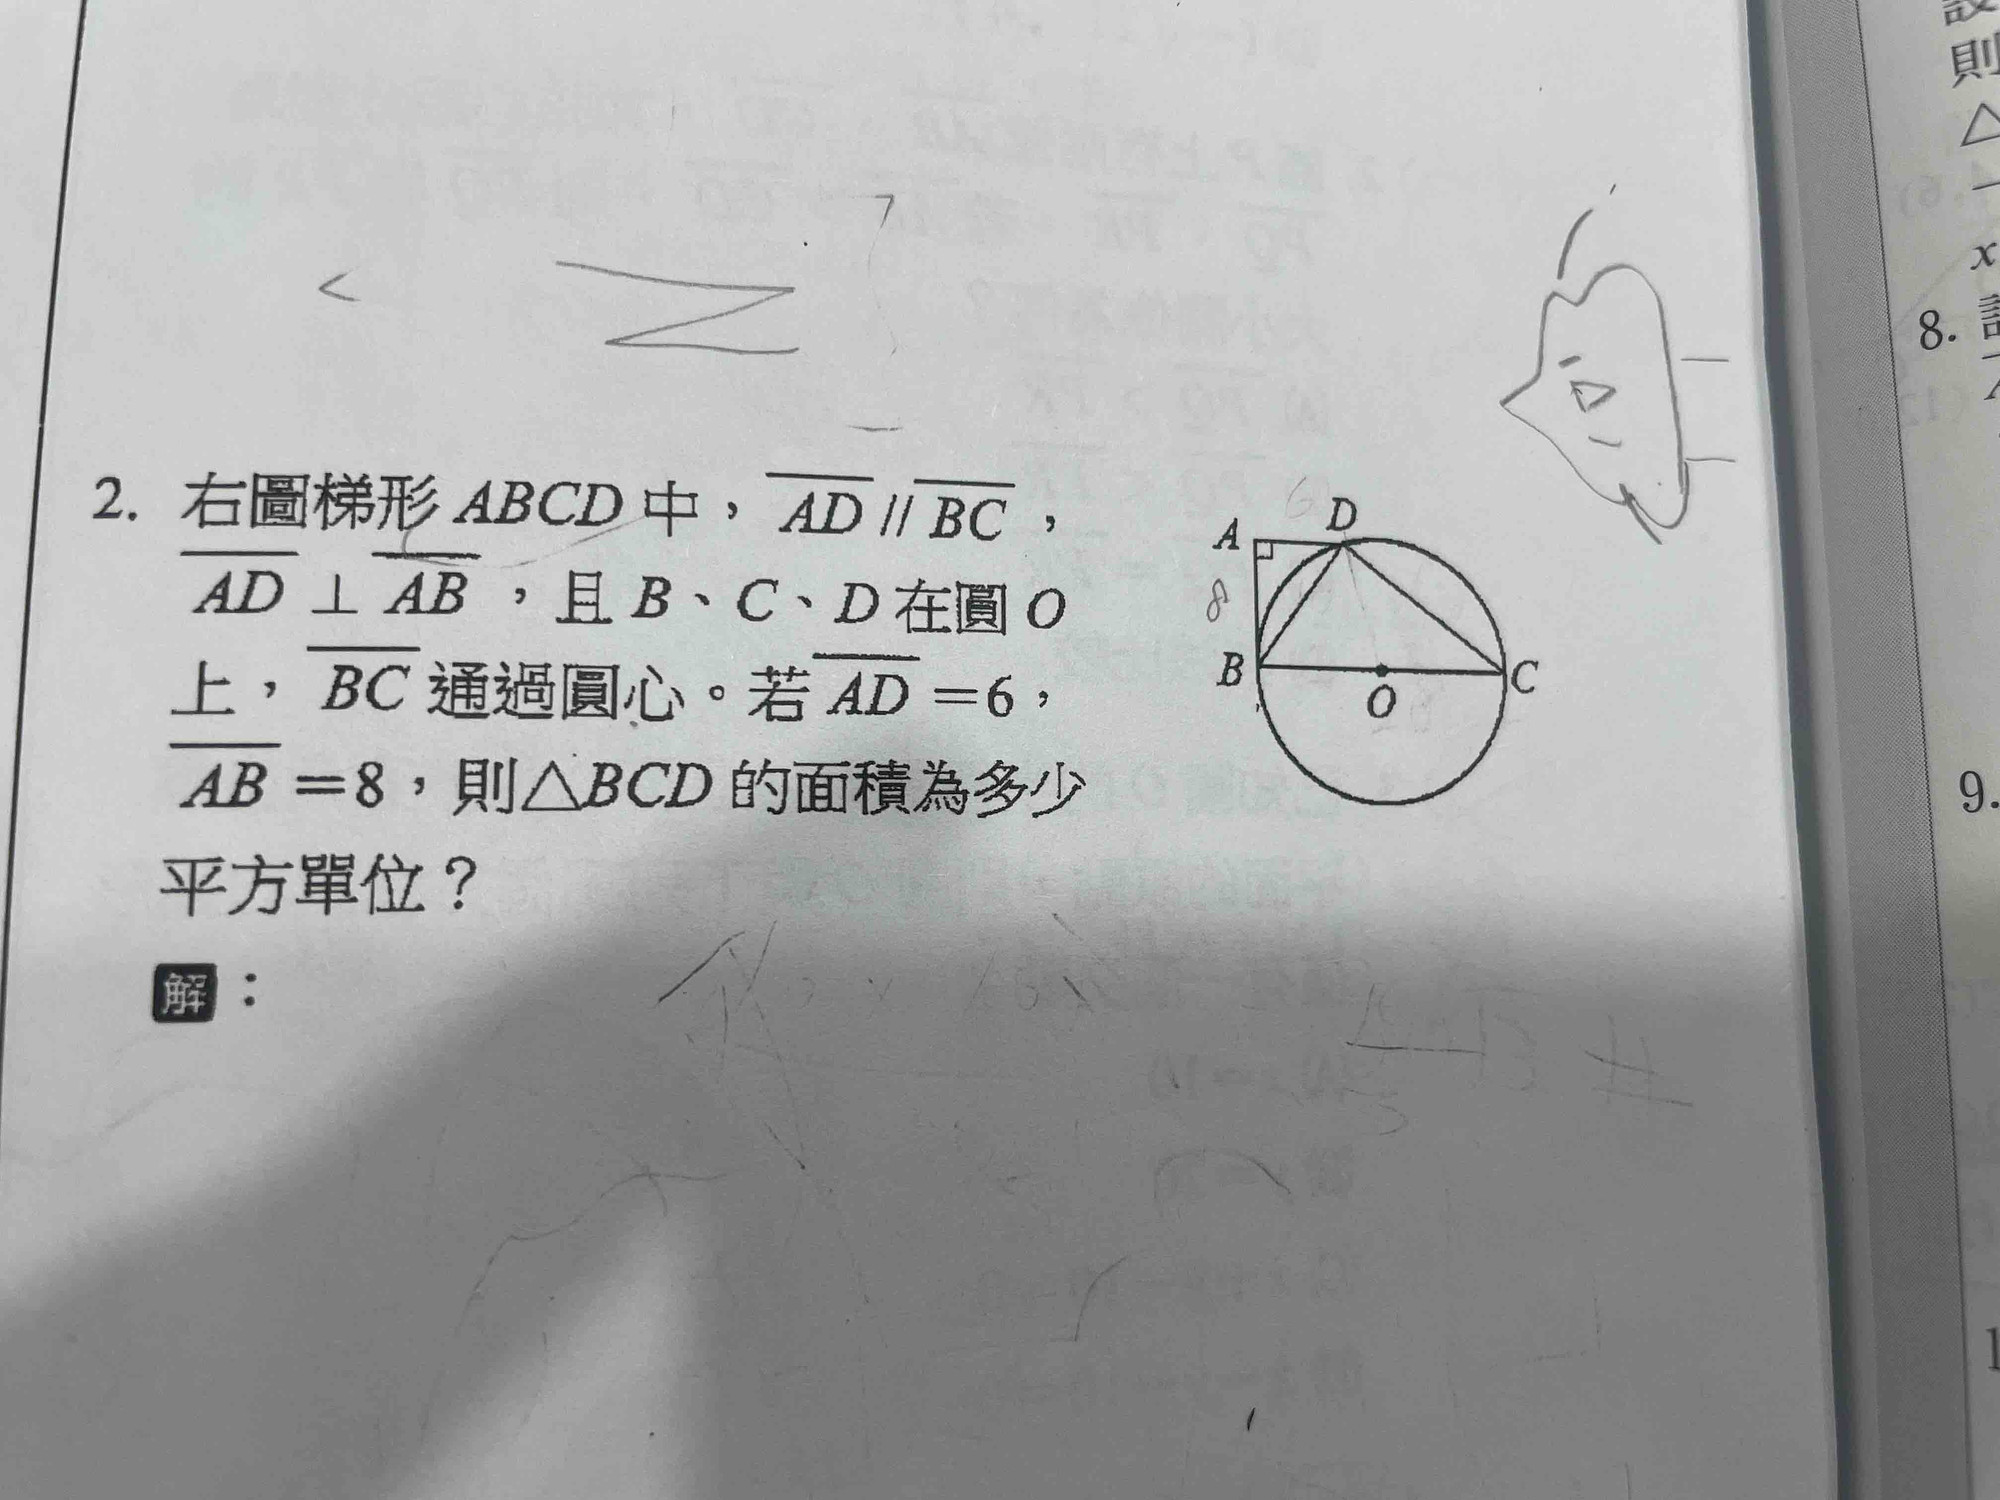 2. 右圖梯形 ABCD 中，AD // BC，
AD ⊥ AB，且 B、C、D 在圓 O
上，BC 通過圓心。若 AD =6，
AB =8，則△BCD 的面積為多少
平方單位？
解：
A
D
8
B
O
C
則
△
x
8.
9.